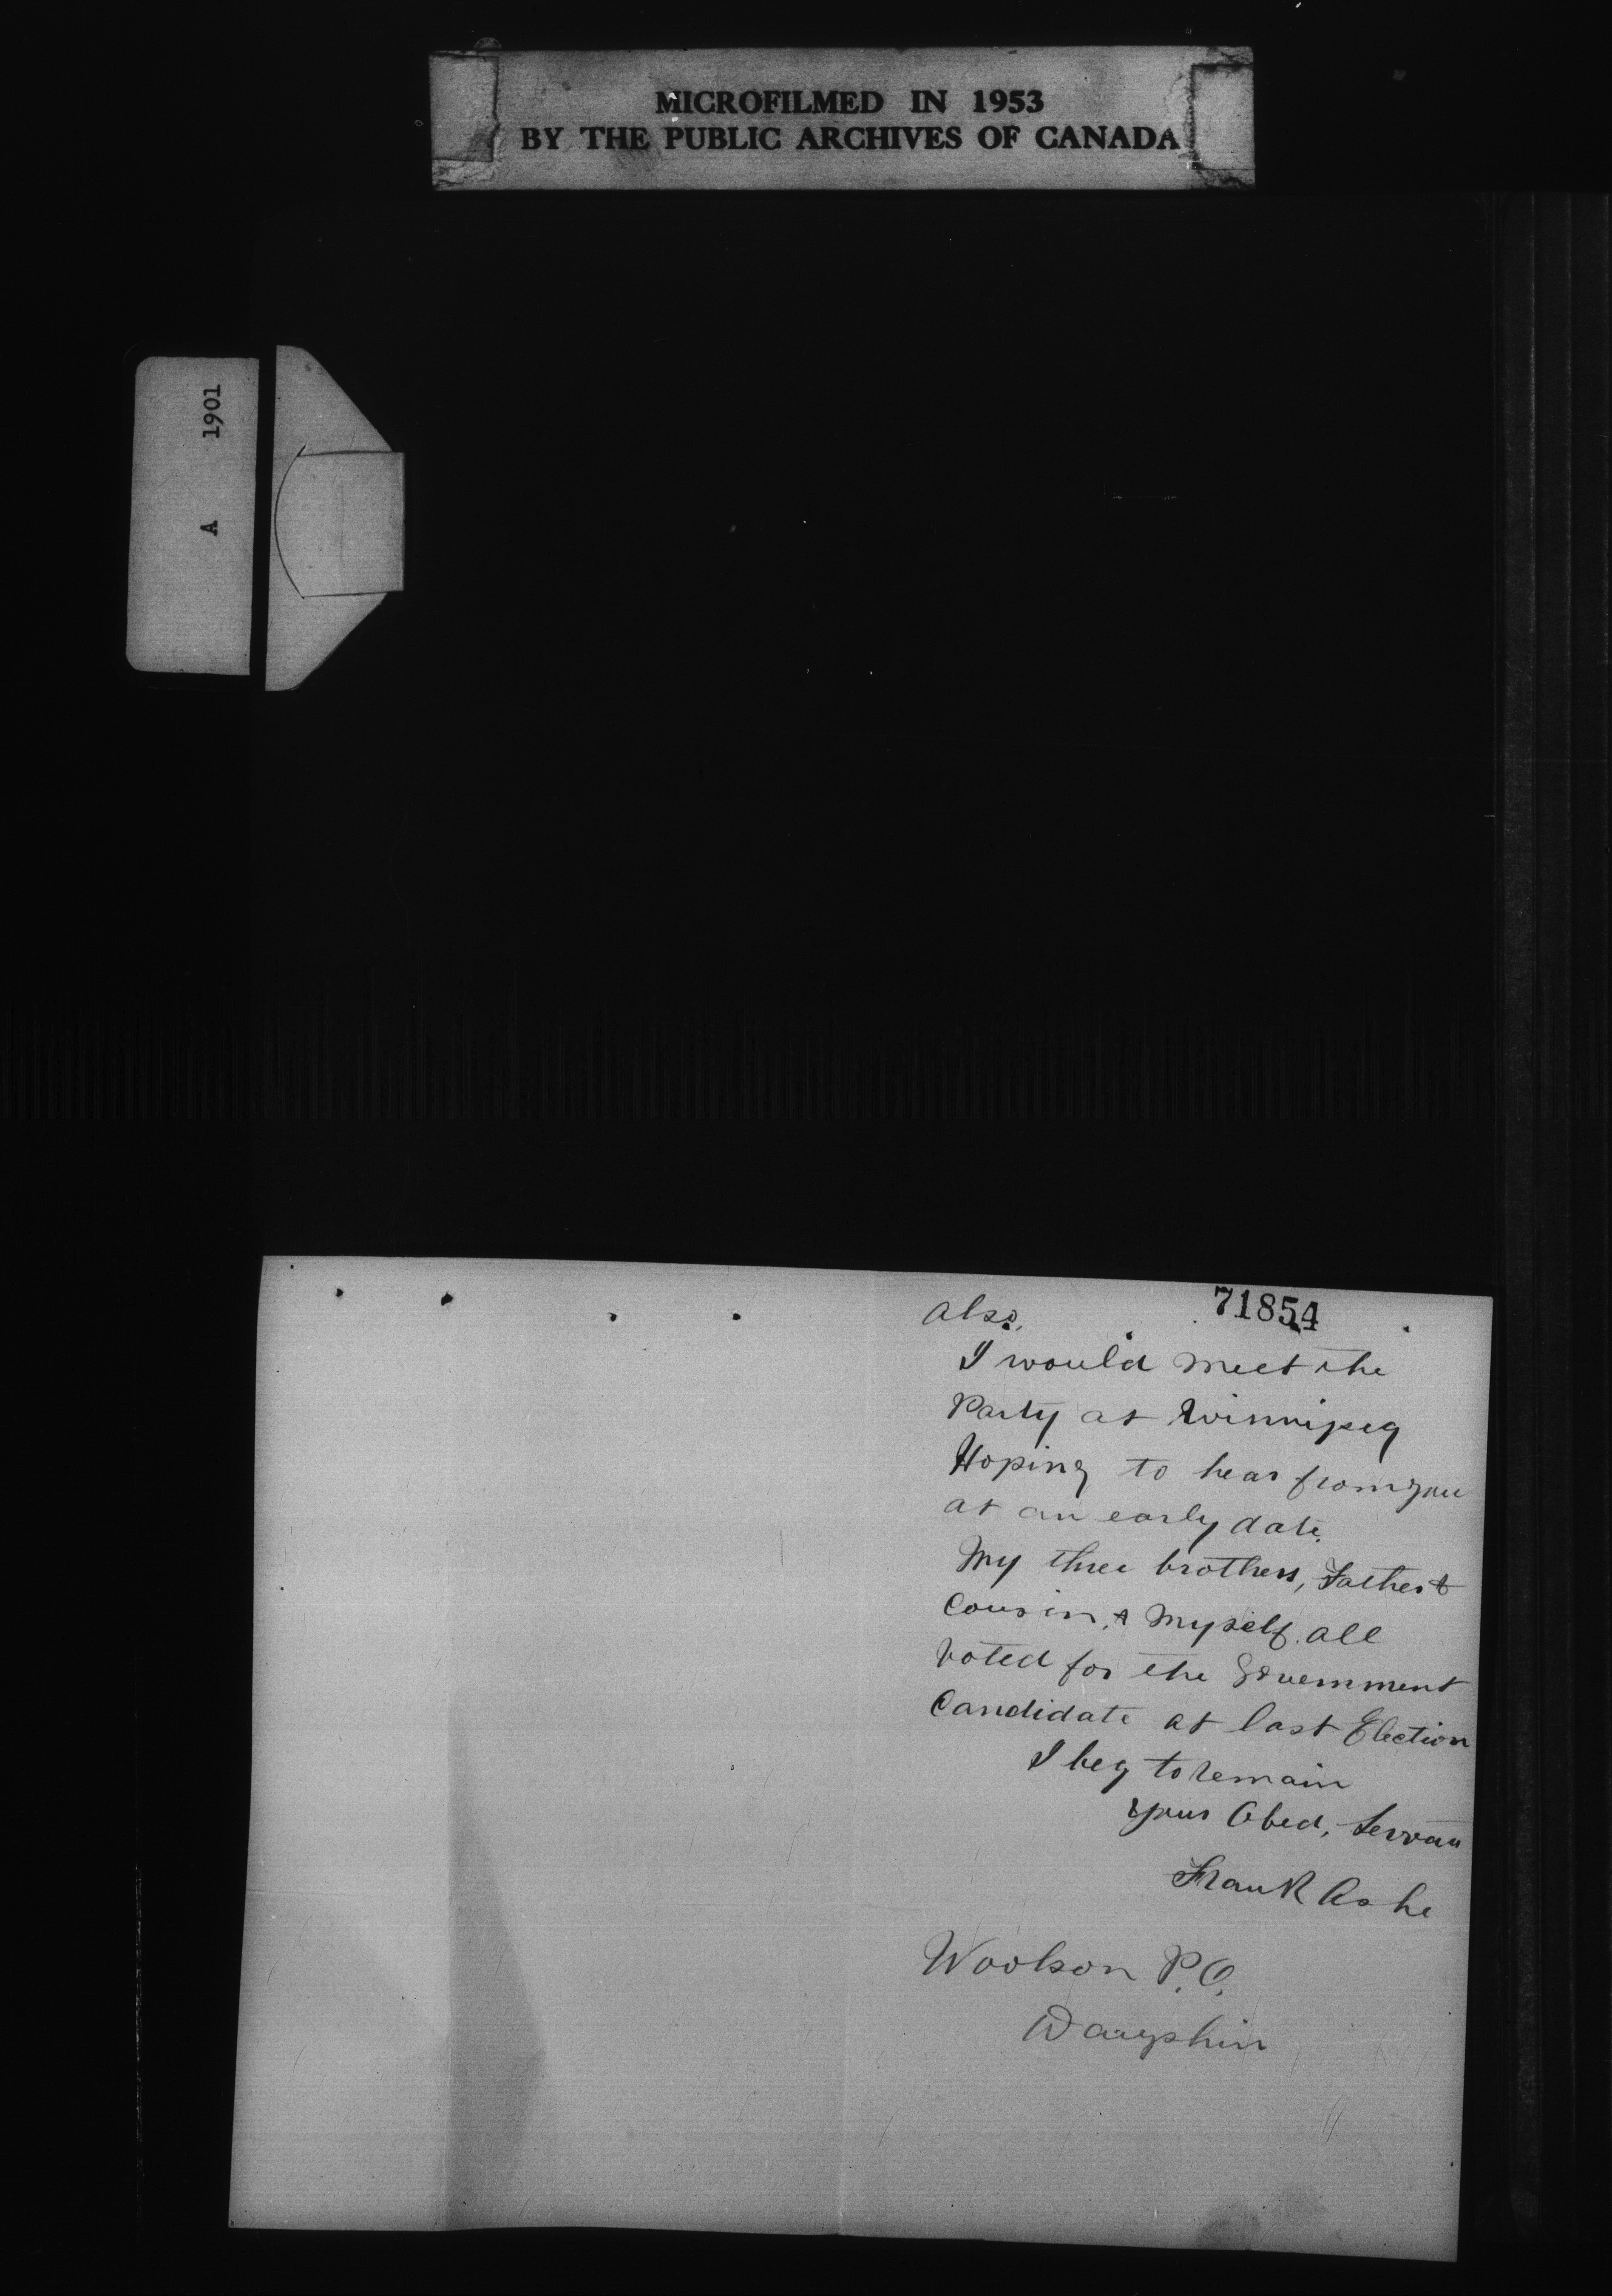 MICROFILMED IN 1953
BY THE PUBLIC ARCHIVES OF CANADA
A 1901
71854
also.
I would meet the
Party at Winnipeg
Hoping to hear from you
at an early date.
My three brothers, Father &
Cousin, & Myself. all
voted for the Government
Candidate at last Election
I beg to remain
Your Obed, Servan
Frank Ashe
Woolson P.O.
Dauphin